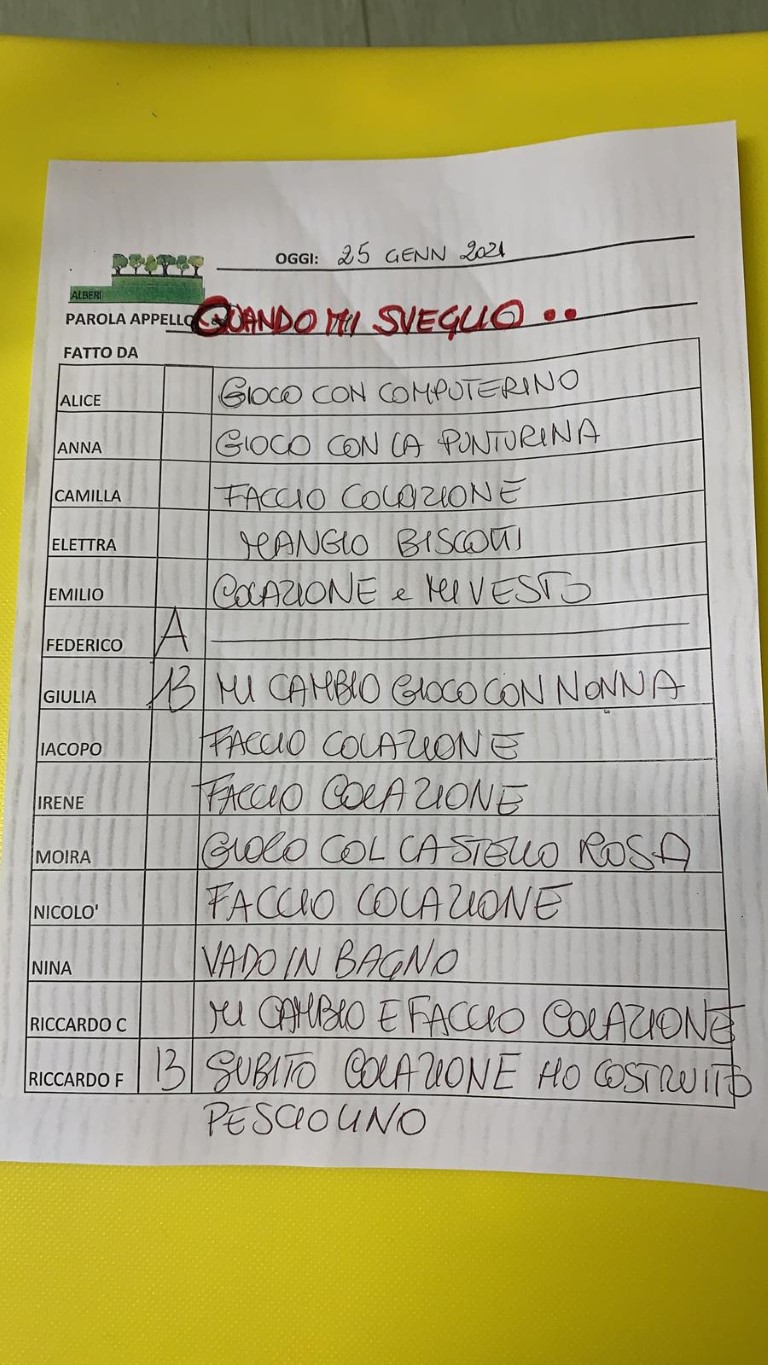 OGGI: 25 GENN 2021
ALBERI
PAROLA APPELLO QUANDO MI SVEGLIO ..
FATTO DA
ALICE GIOCO CON COMPUTERINO
ANNA GIOCO CON LA PUNTURINA
CAMILLA FACCIO COLAZIONE
ELETTRA MANGIO BISCOTTI
EMILIO COLAZIONE e MI VESTO
FEDERICO A
GIULIA 13 MI CAMBIO GIOCO CON NONNA
IACOPO FACCIO COLAZIONE
IRENE FACCIO COLAZIONE
MOIRA GIOCO COL CASTELLO ROSA
NICOLO' FACCIO COLAZIONE
NINA VADO IN BAGNO
RICCARDO C MI CAMBIO E FACCIO COLAZIONE
RICCARDO F 13 SUBITO COLAZIONE HO COSTRUITO
PESCIOLINO